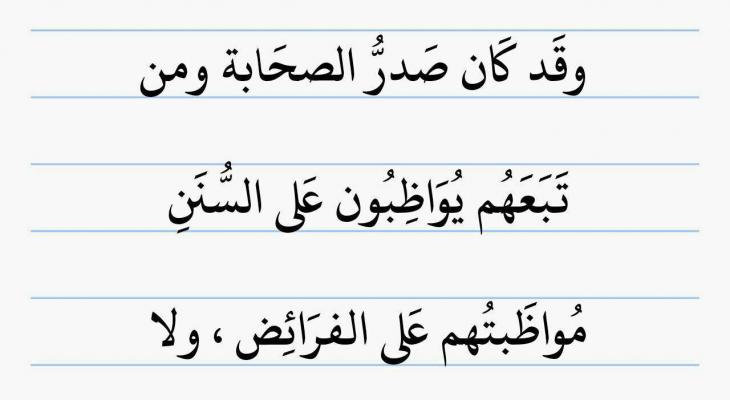 وقَد كَان صَدرُّ الصحَابة ومن
تَبَعَهُم يُوَاظِبُون عَلى السُّنَنِ
مُواظَبتُهم عَلى الفرَائِض ، ولا